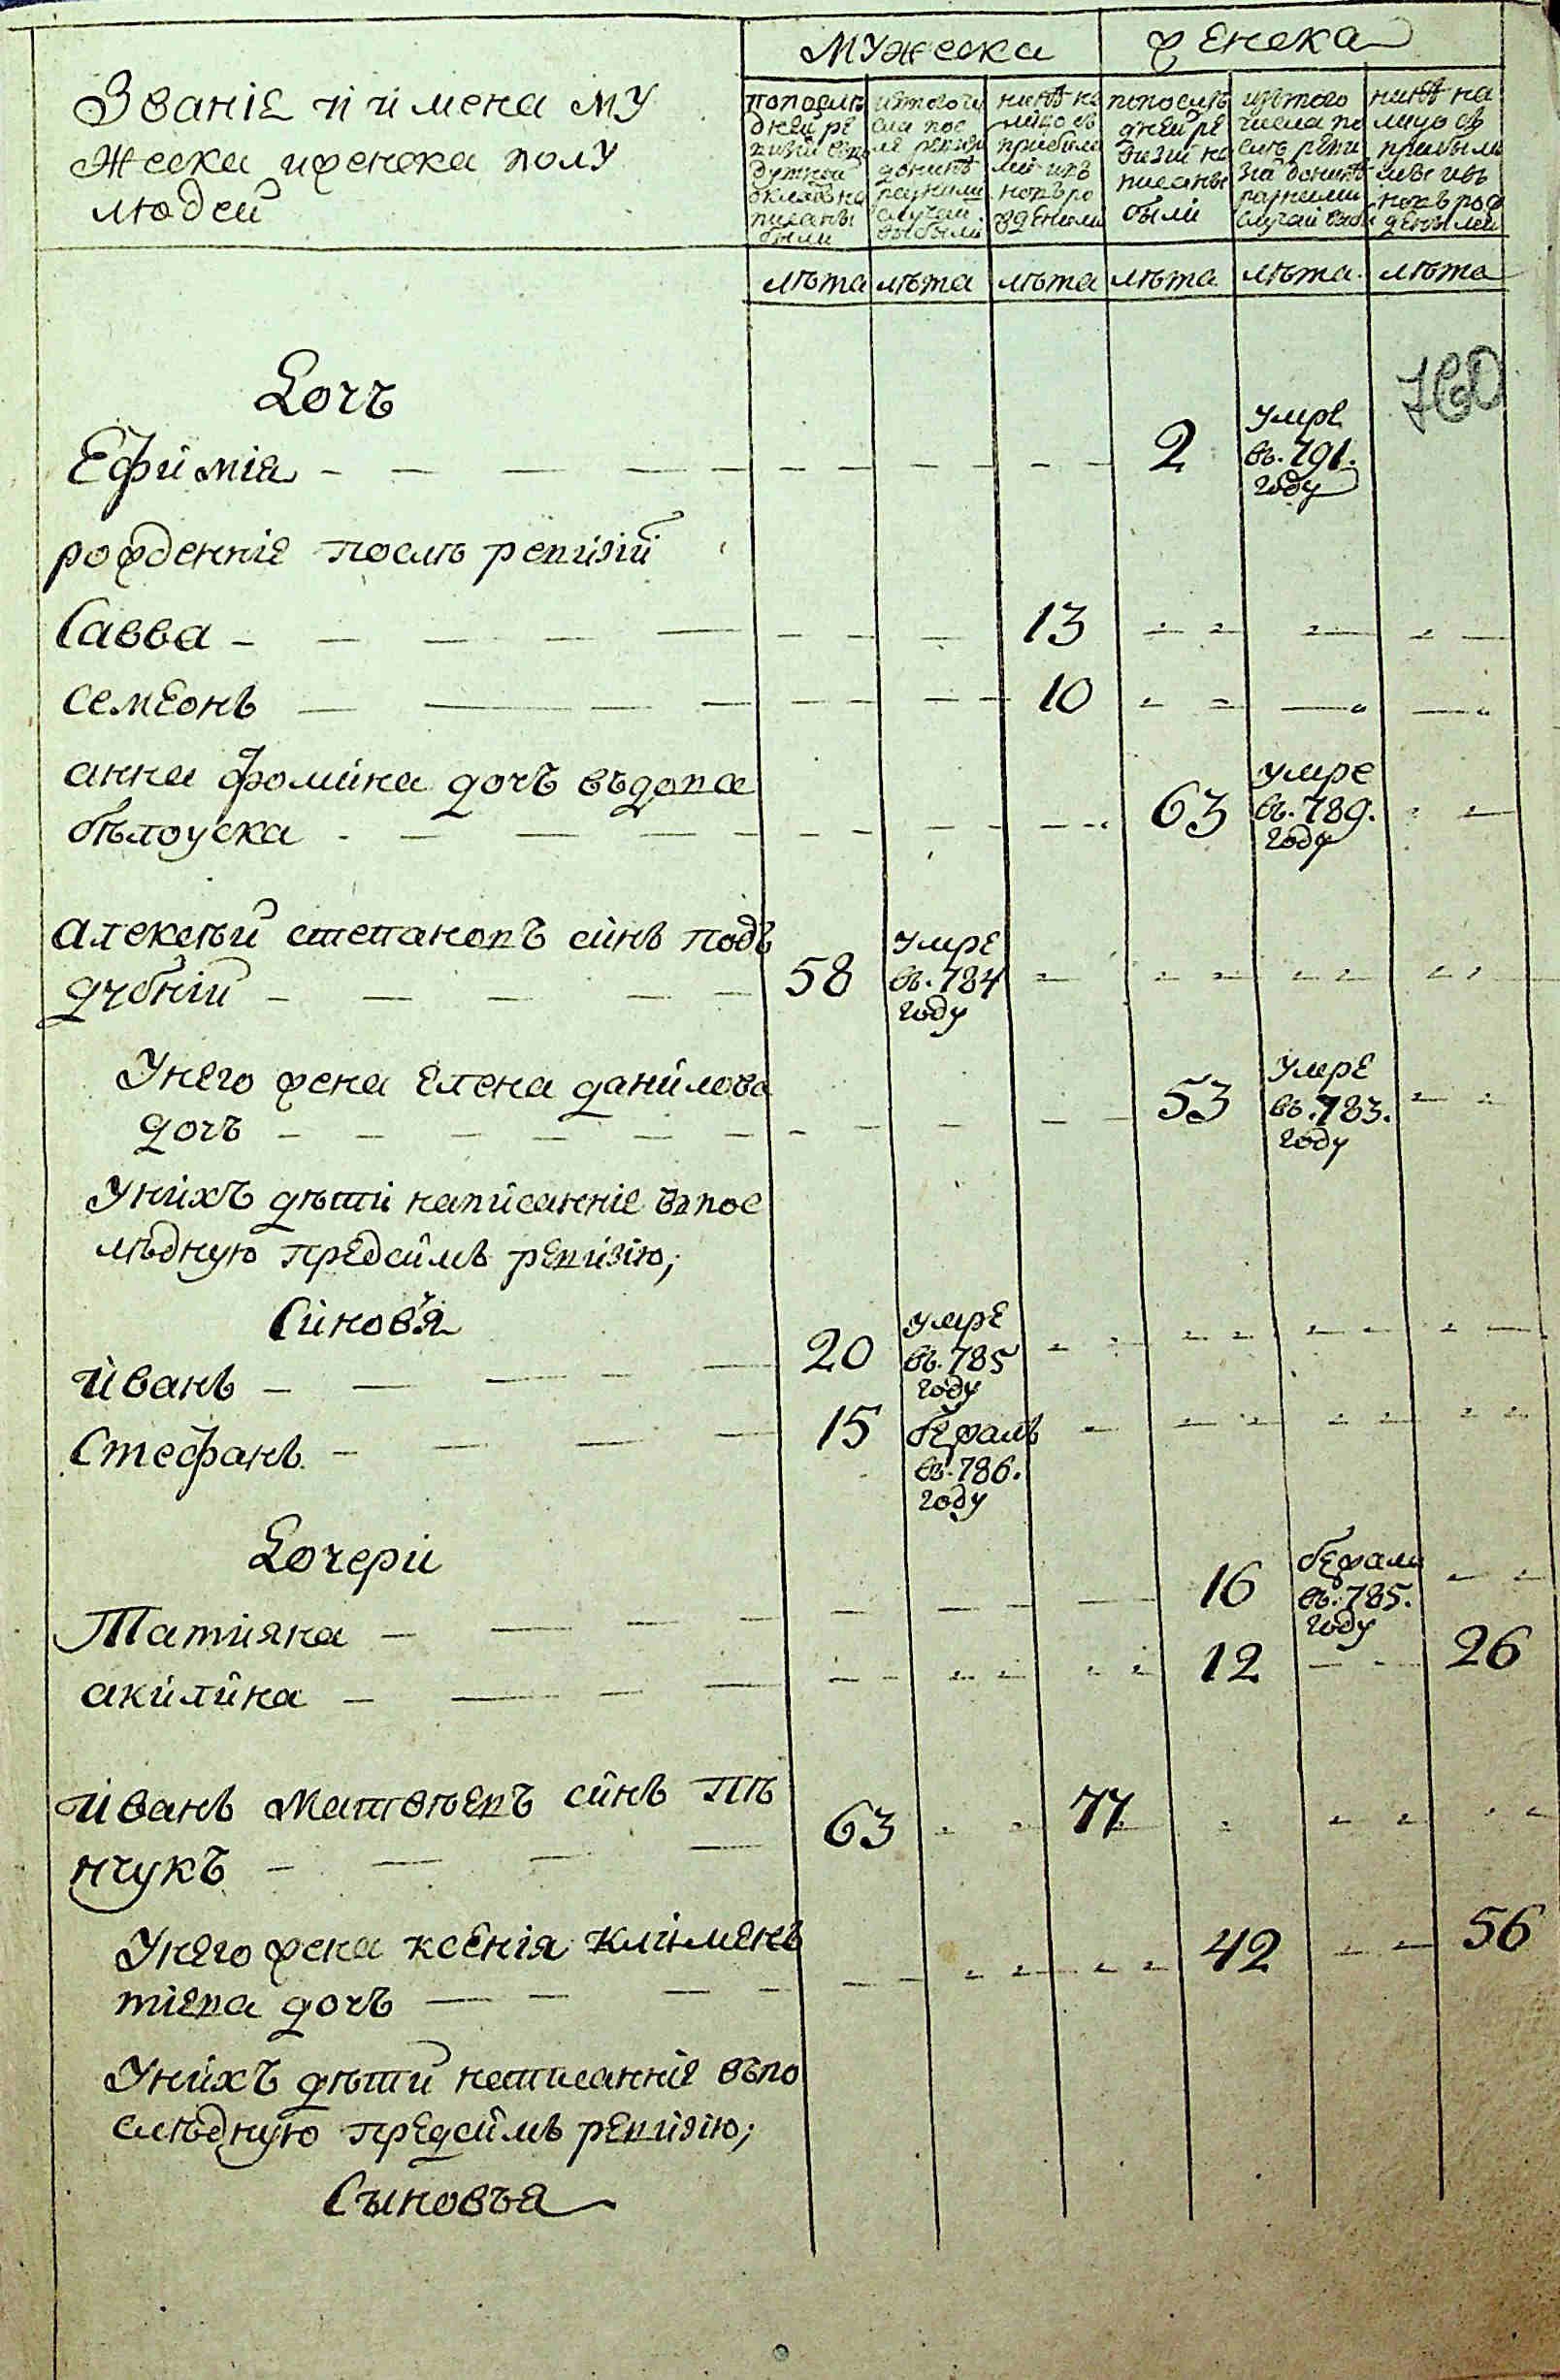 мужеска женска
Званіе и имена му
жеска и женска полу
людей
попослѣ
дней ре
визіи въпо
душной
окладъ на
писаны
были
изтого чи
сла пос
ле ревизи
донинѣ
разними
случаи
выбыли
нинѣ на
лицо съ
прибыли
ми ивъ
новъ ро
ждеными
попослѣ
дней ре
визіи на
писаны
были
изтого
числа по
слѣ реви
зіи донинѣ
разними
случаи выбы
нинѣ на
лицо съ
прибыли
ми ивъ
новъ рож
денымы
лѣта лѣта лѣта лѣта лѣта лѣта
Дочъ
Ефимія 2 умре
въ. 791.
году
рожденніе послѣ ревизій
Савва 13
семеонъ 10
анна фомина дочъ въдова
бѣлоуска 63 умре
въ. 789.
году
алексѣй степановъ синъ подъ
дубній 58 умре
въ. 784
году
Унего жена елена данилова
дочъ 53 умре
въ. 783.
году
Унихъ дѣти написанніе впос
лѣдную предсимъ ревизію;
Синовя
иванъ 20 умре
въ. 785
году
Стефанъ 15 бежалъ
въ. 786.
году
Дочери
Татияна 16 бежала
въ. 785.
году
акилина 12 26
иванъ матвѣевъ синъ пѣ
нчукъ 63 77
Унего жена ксенія клімень
тіева дочъ 42 56
Унихъ дѣти написанніе въпо
слѣдную предсимъ ревизію;
Сыновъя